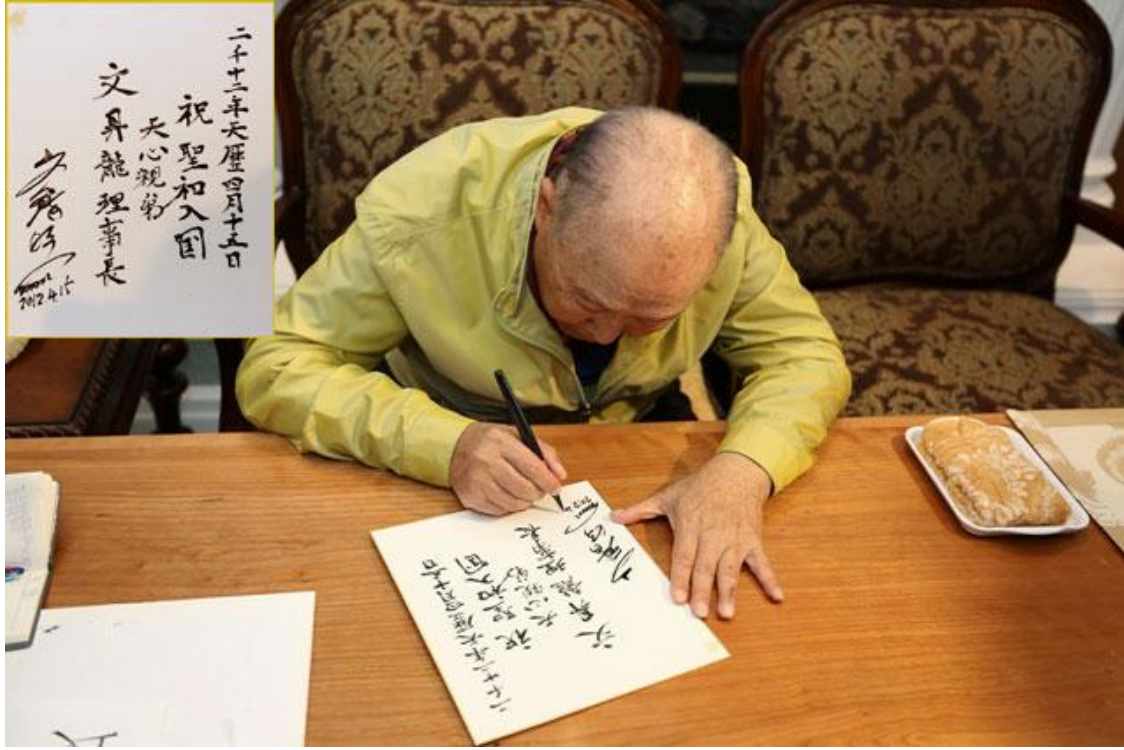 二千十二年天歷四月十五日
祝聖和入国
天心親
文昇龍理事長
2012.4.15